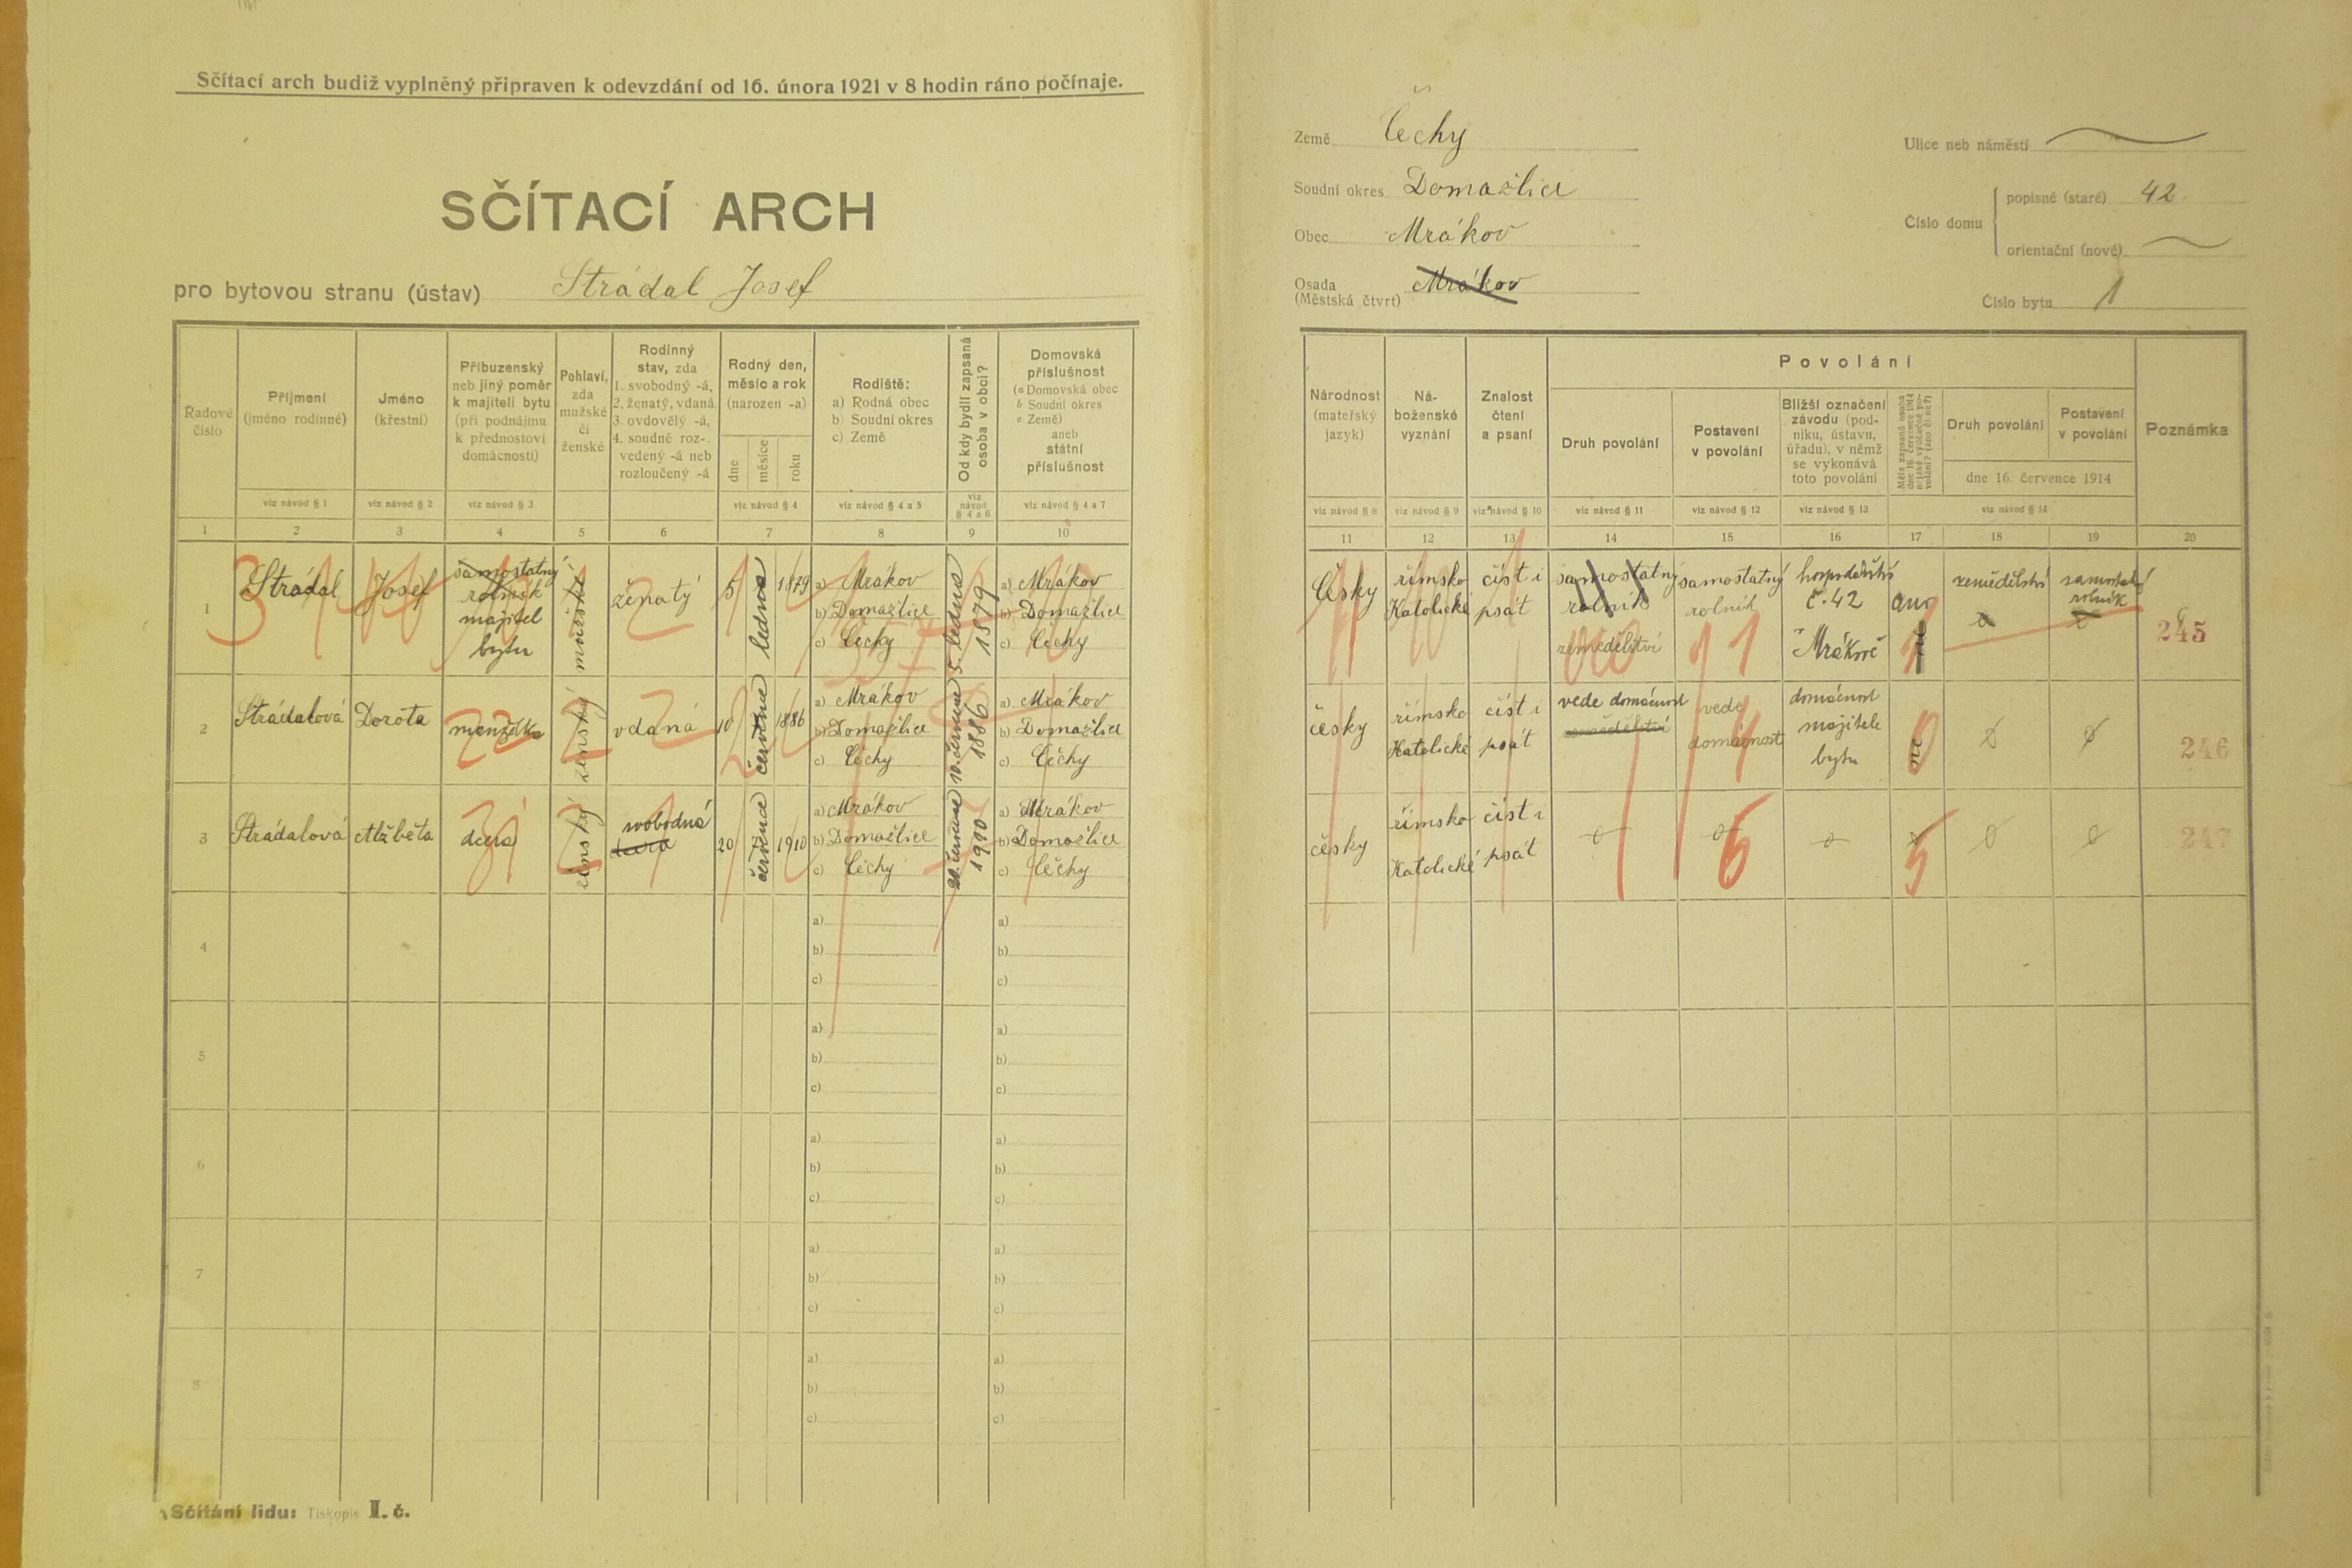 Sčítací arch budiž vyplněný připraven k odevzdání od 16. února 1921 v 8 hodin ráno počínaje.
SČÍTACÍ ARCH
pro bytovou stranu (ústav) Strádal Josef
Země Čechy
Soudní okres Domažlice
Obec Mrákov
Osada Mrákov
(Městská čtvrt)
Ulice neb náměstí
Číslo domu
popisné (staré) 42.
orientační (nové)
Číslo bytu 1
Řadové
číslo
Příjmení
(jméno rodinné)
viz návod § 1
Jméno
(křestní)
viz návod § 2
Příbuzenský
neb jiný poměr
k majiteli bytu
(při podnájmu
k přednostovi
domácnosti)
viz návod § 3
Pohlaví,
zda
mužské
či
ženské
Rodinný
stav, zda
1. svobodný -á,
2. ženatý, vdaná,
3. ovdovělý -á,
4. soudně roz-
vedený -á neb
rozloučený -á
Rodný den,
měsíc a rok
(narozen -a)
dne
měsíce
roku
viz návod § 4
Rodiště:
a) Rodná obec
b) Soudní okres
c) Země
viz návod § 4 a 5
Od kdy bydlí zapsaná
osoba v obci?
viz
návod
§ 4 a 6
Domovská
příslušnost
(a Domovská obec
b Soudní okres
c Země)
aneb
státní
příslušnost
viz návod § 4 a 7
Národnost
(mateřský
jazyk)
viz návod § 8
Ná-
boženské
vyznání
viz návod § 9
Znalost
čtení
a psaní
viz návod § 10
Povolání
Druh povolání
viz návod § 11
Postavení
v povolání
viz návod § 12
Bližší označení
závodu (pod-
niku, ústavu,
úřadu), v němž
se vykonává
toto povolání
viz návod § 13
Druh povolání
Postavení
v povolání
dne 16. července 1914
viz návod § 14
Poznámka
1 2 3 4 5 6 7 8 9 10 11 12 13 14 15 16 17 18 19 20
1
Strádal
Josef
samostatný
rolník
majitel
bytu
mužské
ženatý
5
ledna
1879
a) Mrákov
b) Domažlice
c) Čechy
5. ledna
1879
a) Mrákov
b) Domažlice
c) Čechy
Česky
římsko
Katolické
číst i
psát
samostatný
rolník
zemědělství
samostatný
rolník
hospodářství
č. 42
Mrákově
ano
ne
zemědělství
samostatný
rolník
245
2
Strádalová
Dorota
manželka
ženský
vdaná
10
června
1886
a) Mrákov
b) Domažlice
c) Čechy
10. června
1886
a) Mrákov
b) Domažlice
c) Čechy
česky
římsko
Katolické
číst i
psát
vede domácnost
zemědělství
vede
domácnost
domácnost
majitele
bytu
ne
246
3
Strádalová
Alžběta
dcera
ženský
svobodná
dcera
20
července
1910
a) Mrákov
b) Domažlice
c) Čechy
1910
a) Mrákov
b) Domažlice
c) Čechy
česky
římsko
Katolické
číst i
psát
247
4
a)
b)
c)
a)
b)
c)
5
a)
b)
c)
a)
b)
c)
6
a)
b)
c)
a)
b)
c)
7
a)
b)
c)
a)
b)
c)
8
a)
b)
c)
a)
b)
c)
Sčítání lidu: Tiskopis I. č.